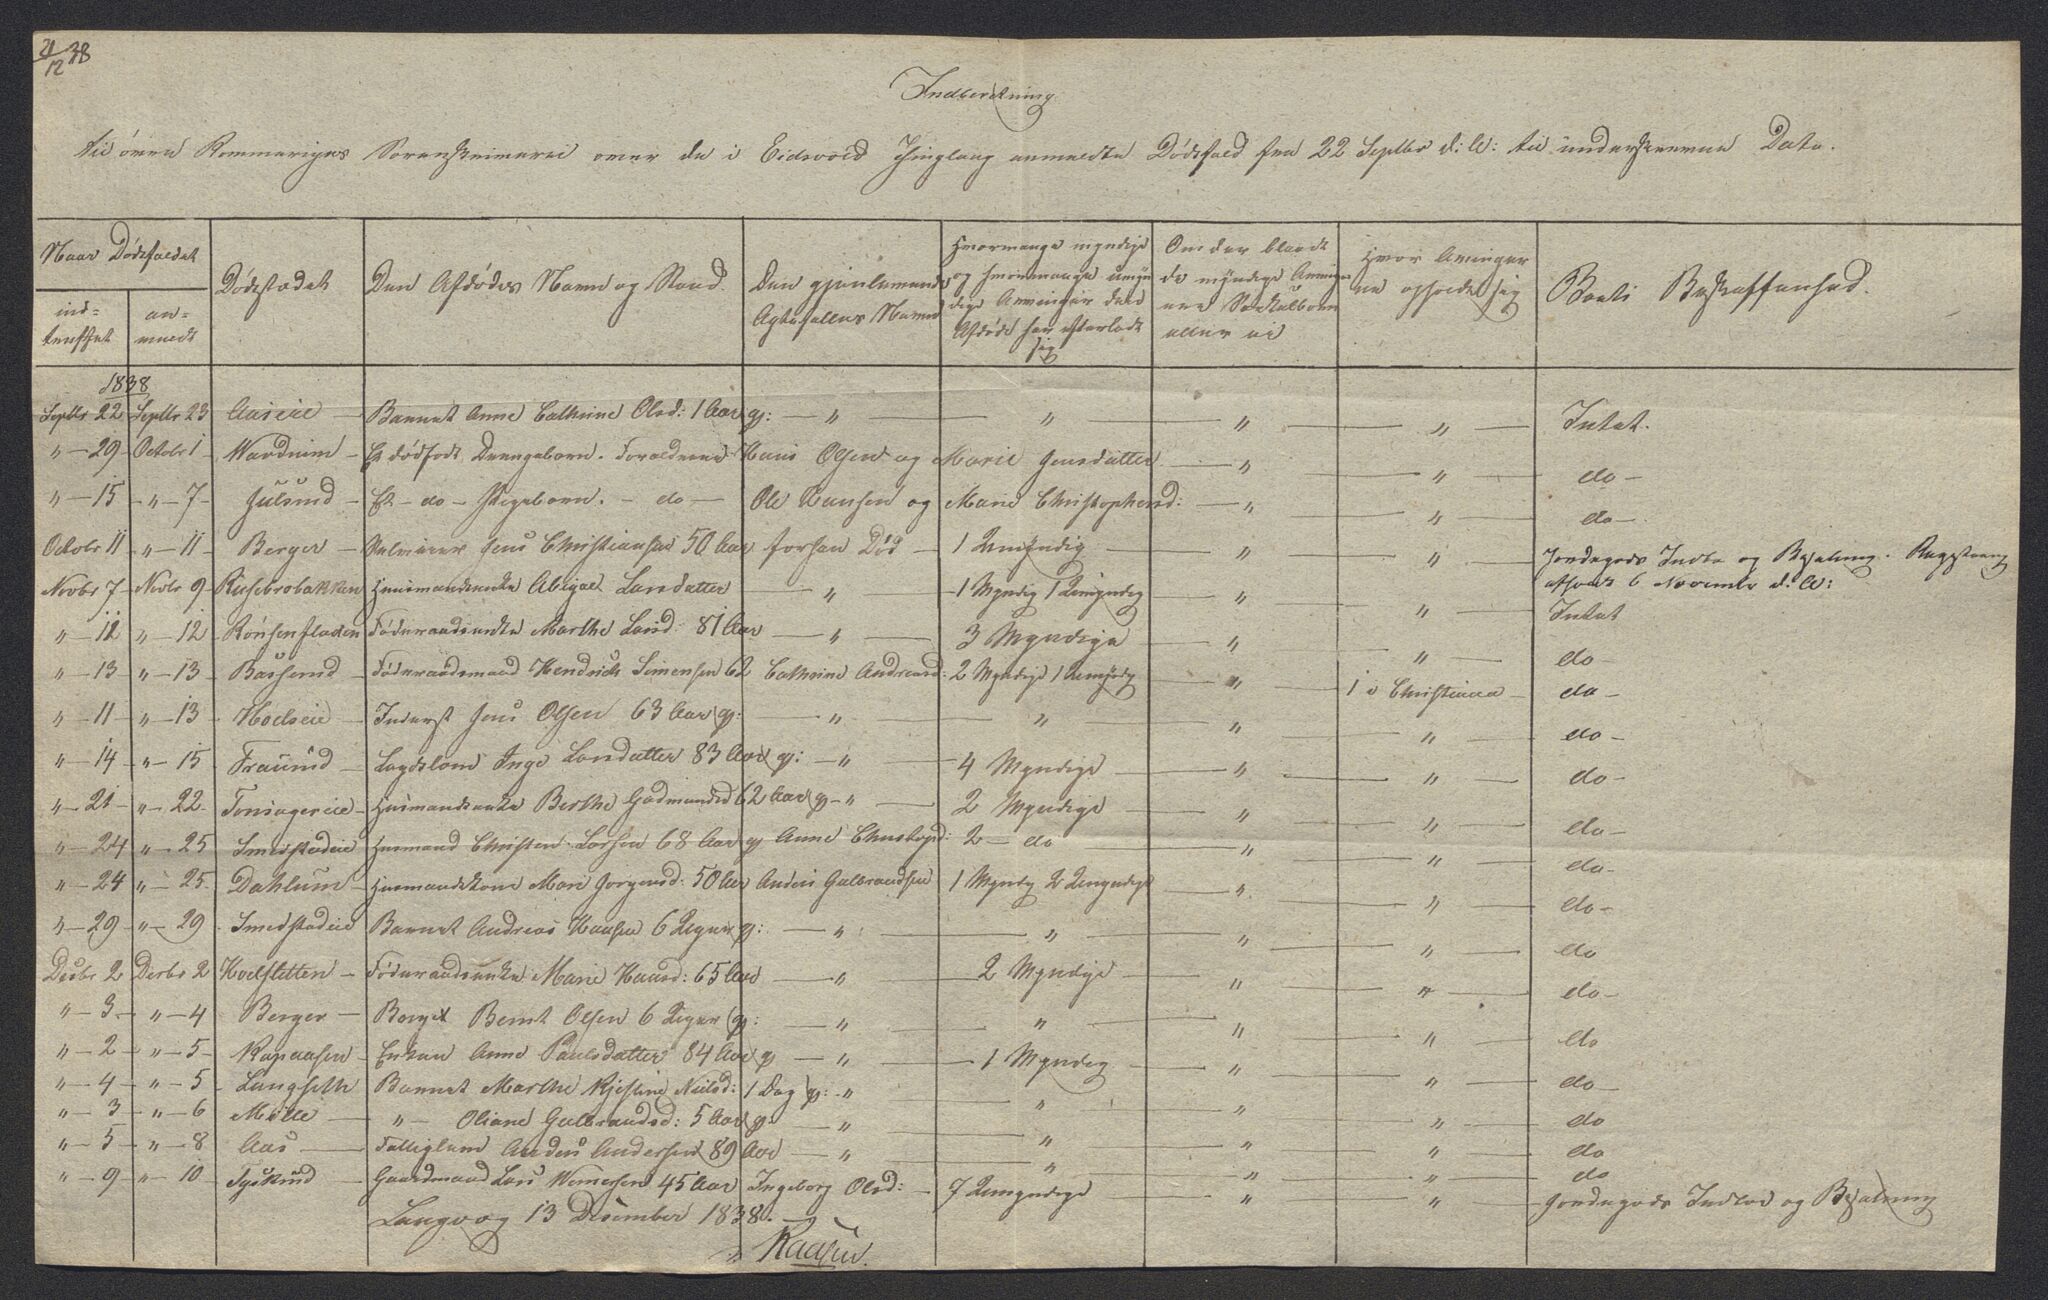 21/12 38
Indberetning
til øvre Rommeriges Sorenskriverei over de i Eidsvold Thinglaug anmeldte Dødsfald fra 22 Septbr d: A: til underskrevne Dato.
Naar Dødsfaldet
ind= truffet
an= meldt
Dødsstedet
Den Afdødes Navn og Stand
Den gjenlevende Ægtefælles Navn
Hvormange myndige og hvormange umyndige Arvinger den Afdøde har efterladt sig
Om der blandt de myndige Arvinger ere Særkulborn eller ei
Hvor Arvingerne opholde sig
Boets Beskaffenhed.
1838
Septbr 22 Septbr 23 Barnet Anne Cathrine Olsd: 1 Aar g: — " — " — " — " — Intet.
" — 29 Octobr 1 Et dødfødt Drengebarn. Forældrene Hans Olsen og Marie Jensdatter — " — " — do —
" — 15 " — 7 Julsrud — Et — do — Pigebarn. — do — Ole Hansen og Marie Christophersd: — " — " — do —
Octobr 11 " — 11 Berger — Jens Christiansen 50 Aar forhen Død — 1 Umyndig — " — " Jordegods Indbo og Besætning.
Novbr 7 Novbr 9 Husmandsenke Abigael Larsdatter — " — 1 Myndig 1 Umyndig — " — " — Intet
6 November d: A:
" — 12 " — 12 Føderaadsenke Marthe Larsd: 81 Aar — " — 3 Myndige — " — " — do —
" — 13 " — 13 Føderaadsmand Hendrich Simensen 62 Cathrine Andreasd: 2 Myndige 1 Umyndig — " — 1 i Christiania — do —
" — 11 " — 13 Inderst Jens Olsen 63 Aar g: — " — " — " — " — do —
" — 14 " — 15 Lægdslem Inge Larsdatter 83 Aar g: — " — 4 Myndige — " — " — do —
" — 21 " — 22 Tonsagereie Husmandsenke Berthe Gudmundsd 62 Aar g — " — 2 Myndige — " — " — do —
" — 24 " — 25 Smedstadeie Husmand Christen Larsen 68 Aar g Anne Christophd: 2 — do — " — " — do —
" — 24 " — 25 Dahlum Husmandskone Mari Jorgensd: 50 Aar Anders Gulbrandsen 1 Myndig 2 Umyndige — " — " — do —
" — 29 " — 29 Smedstadeie Barnet Andreas Hansen 6 Uger g: — " — " — " — " — do
Decbr 2 Decbr 2 Føderaadsenke Marie Hansd: 65 Aar — " — 2 Myndige — " — " — do —
" — 3 " — 4 Berger — Bernt Olsen 6 Uger g: — " — " — " — " — do
" — 2 " — 5 Enken Anne Paulsdatter 84 Aar g — " — 1 Myndig — " — " — do —
" — 4 " — 5 Langseth Barnet Marthe Kjestine Nielsd: 1 Dag g: " — " — " — " — do
" — 3 " — 6 Mølle — " — Oliane Gulbrandsd: 5 Aar g: — " — " — " — " — do
" — 5 " — 8 Aas — Fattiglem Anders Andersen 89 Aar — " — " — " — " — do
" — 9 " — 10 Gaardmand Lars 45 Aar Ingeborg Olsd: — 7 Umyndige — " — " Jordegods Indbo og Besætning
Langvog 13 December 1838.
Kaasen.